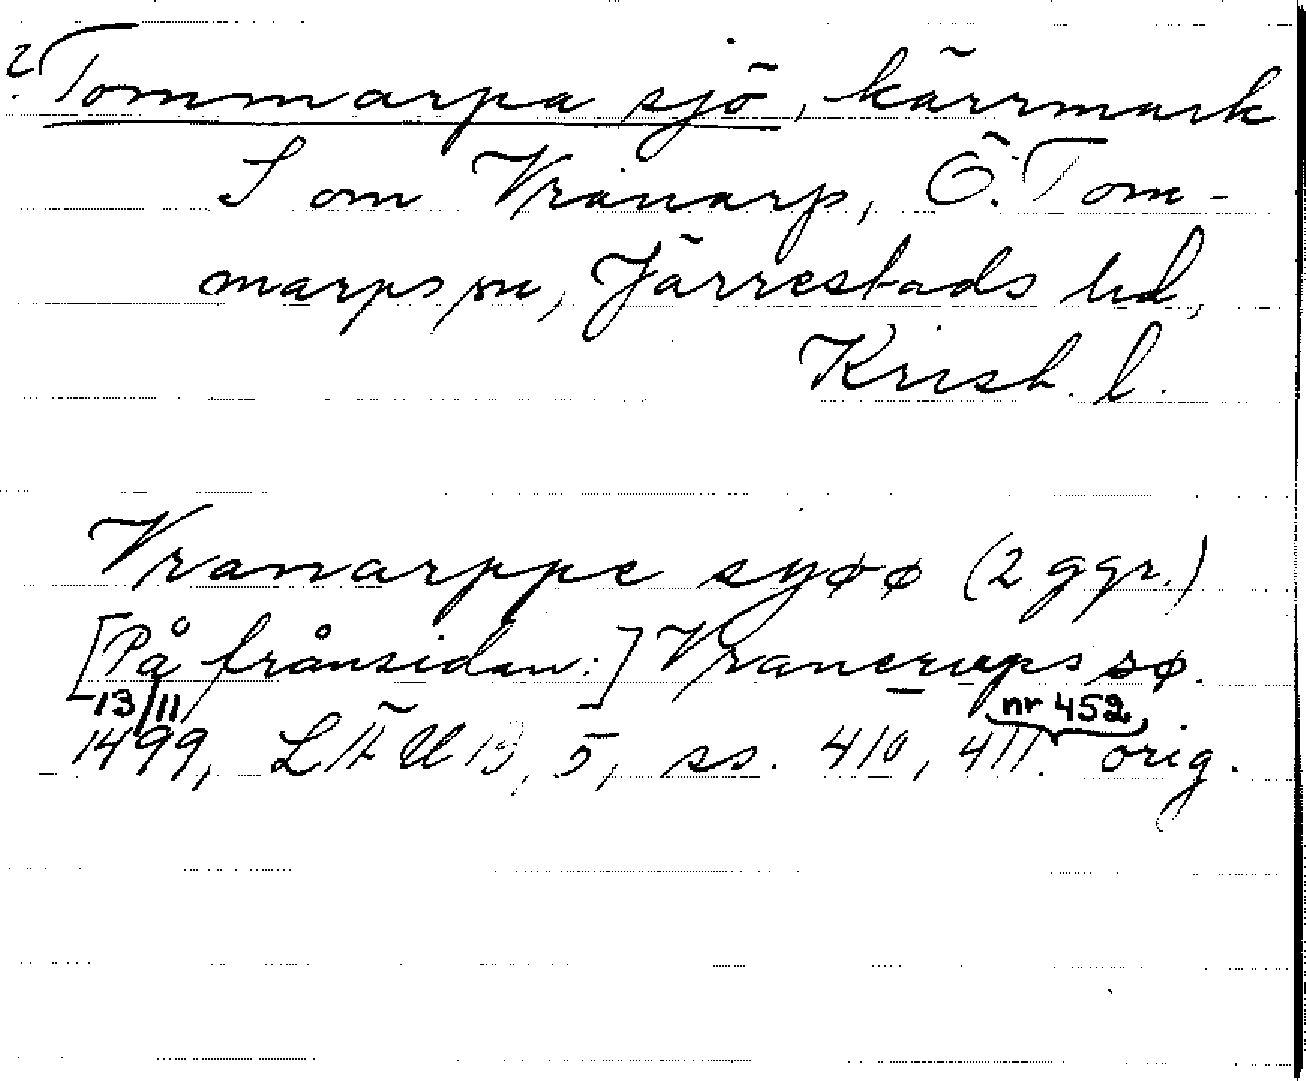 ? Tommarpa sjö, kärrmark
S om Vranarp, Ö. Tom-
marps sn, Järrestads hd,
Krist. l.
Vranarppe syøø (2 ggr.)
[På frånsidan:] Vranerups sø.
13/11 nr 452
1499, LÄUB, 5, ss. 410, 411. orig.